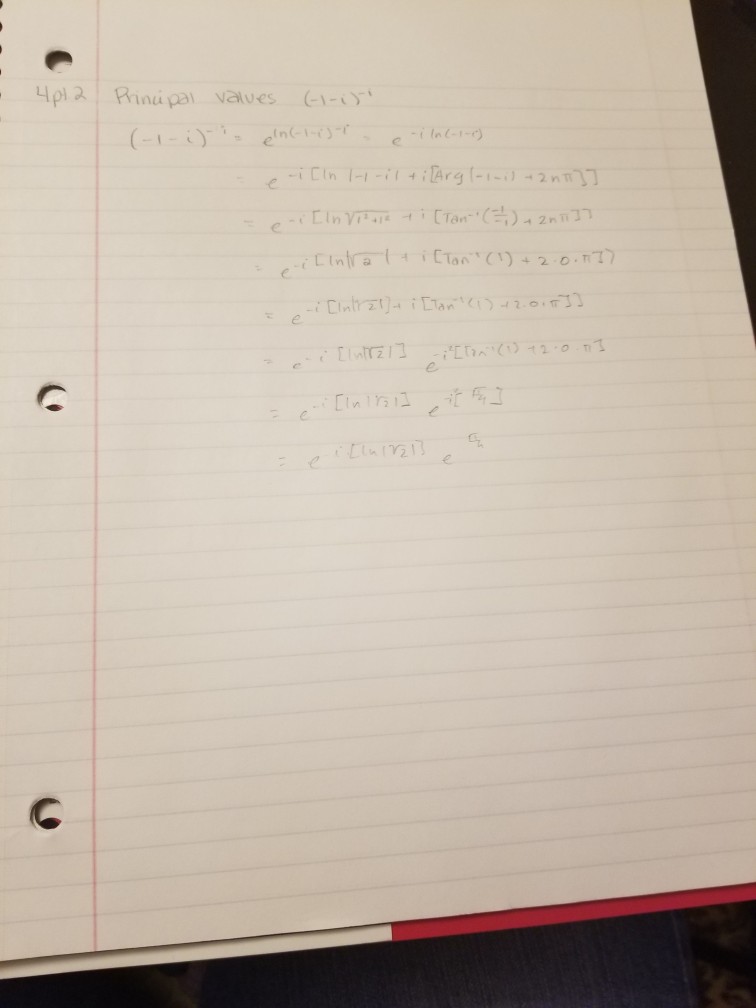 4pt.2 Principal values (-1-i)^-i
(-1-i)^-i = e^ln(-1-i)^-i = e^-i ln(-1-i)
= e^-i[ln |-1-i| + i[Arg(-1-i) + 2nπ]]
= e^-i[ln √1²+1² + i[Tan⁻¹(-1/-1) + 2nπ]]
= e^-i[ln|√2| + i[Tan⁻¹(1) + 2·0·π]]
= e^-i[ln|√2|] + i[Tan⁻¹(1) + 2·0·π]]
= e^-i[ln|√2|] e^-i²[Tan⁻¹(1) + 2·0·π]
= e^-i[ln|√2|] e^-i²[π/4]
= e^-i[ln|√2|] e^π/4